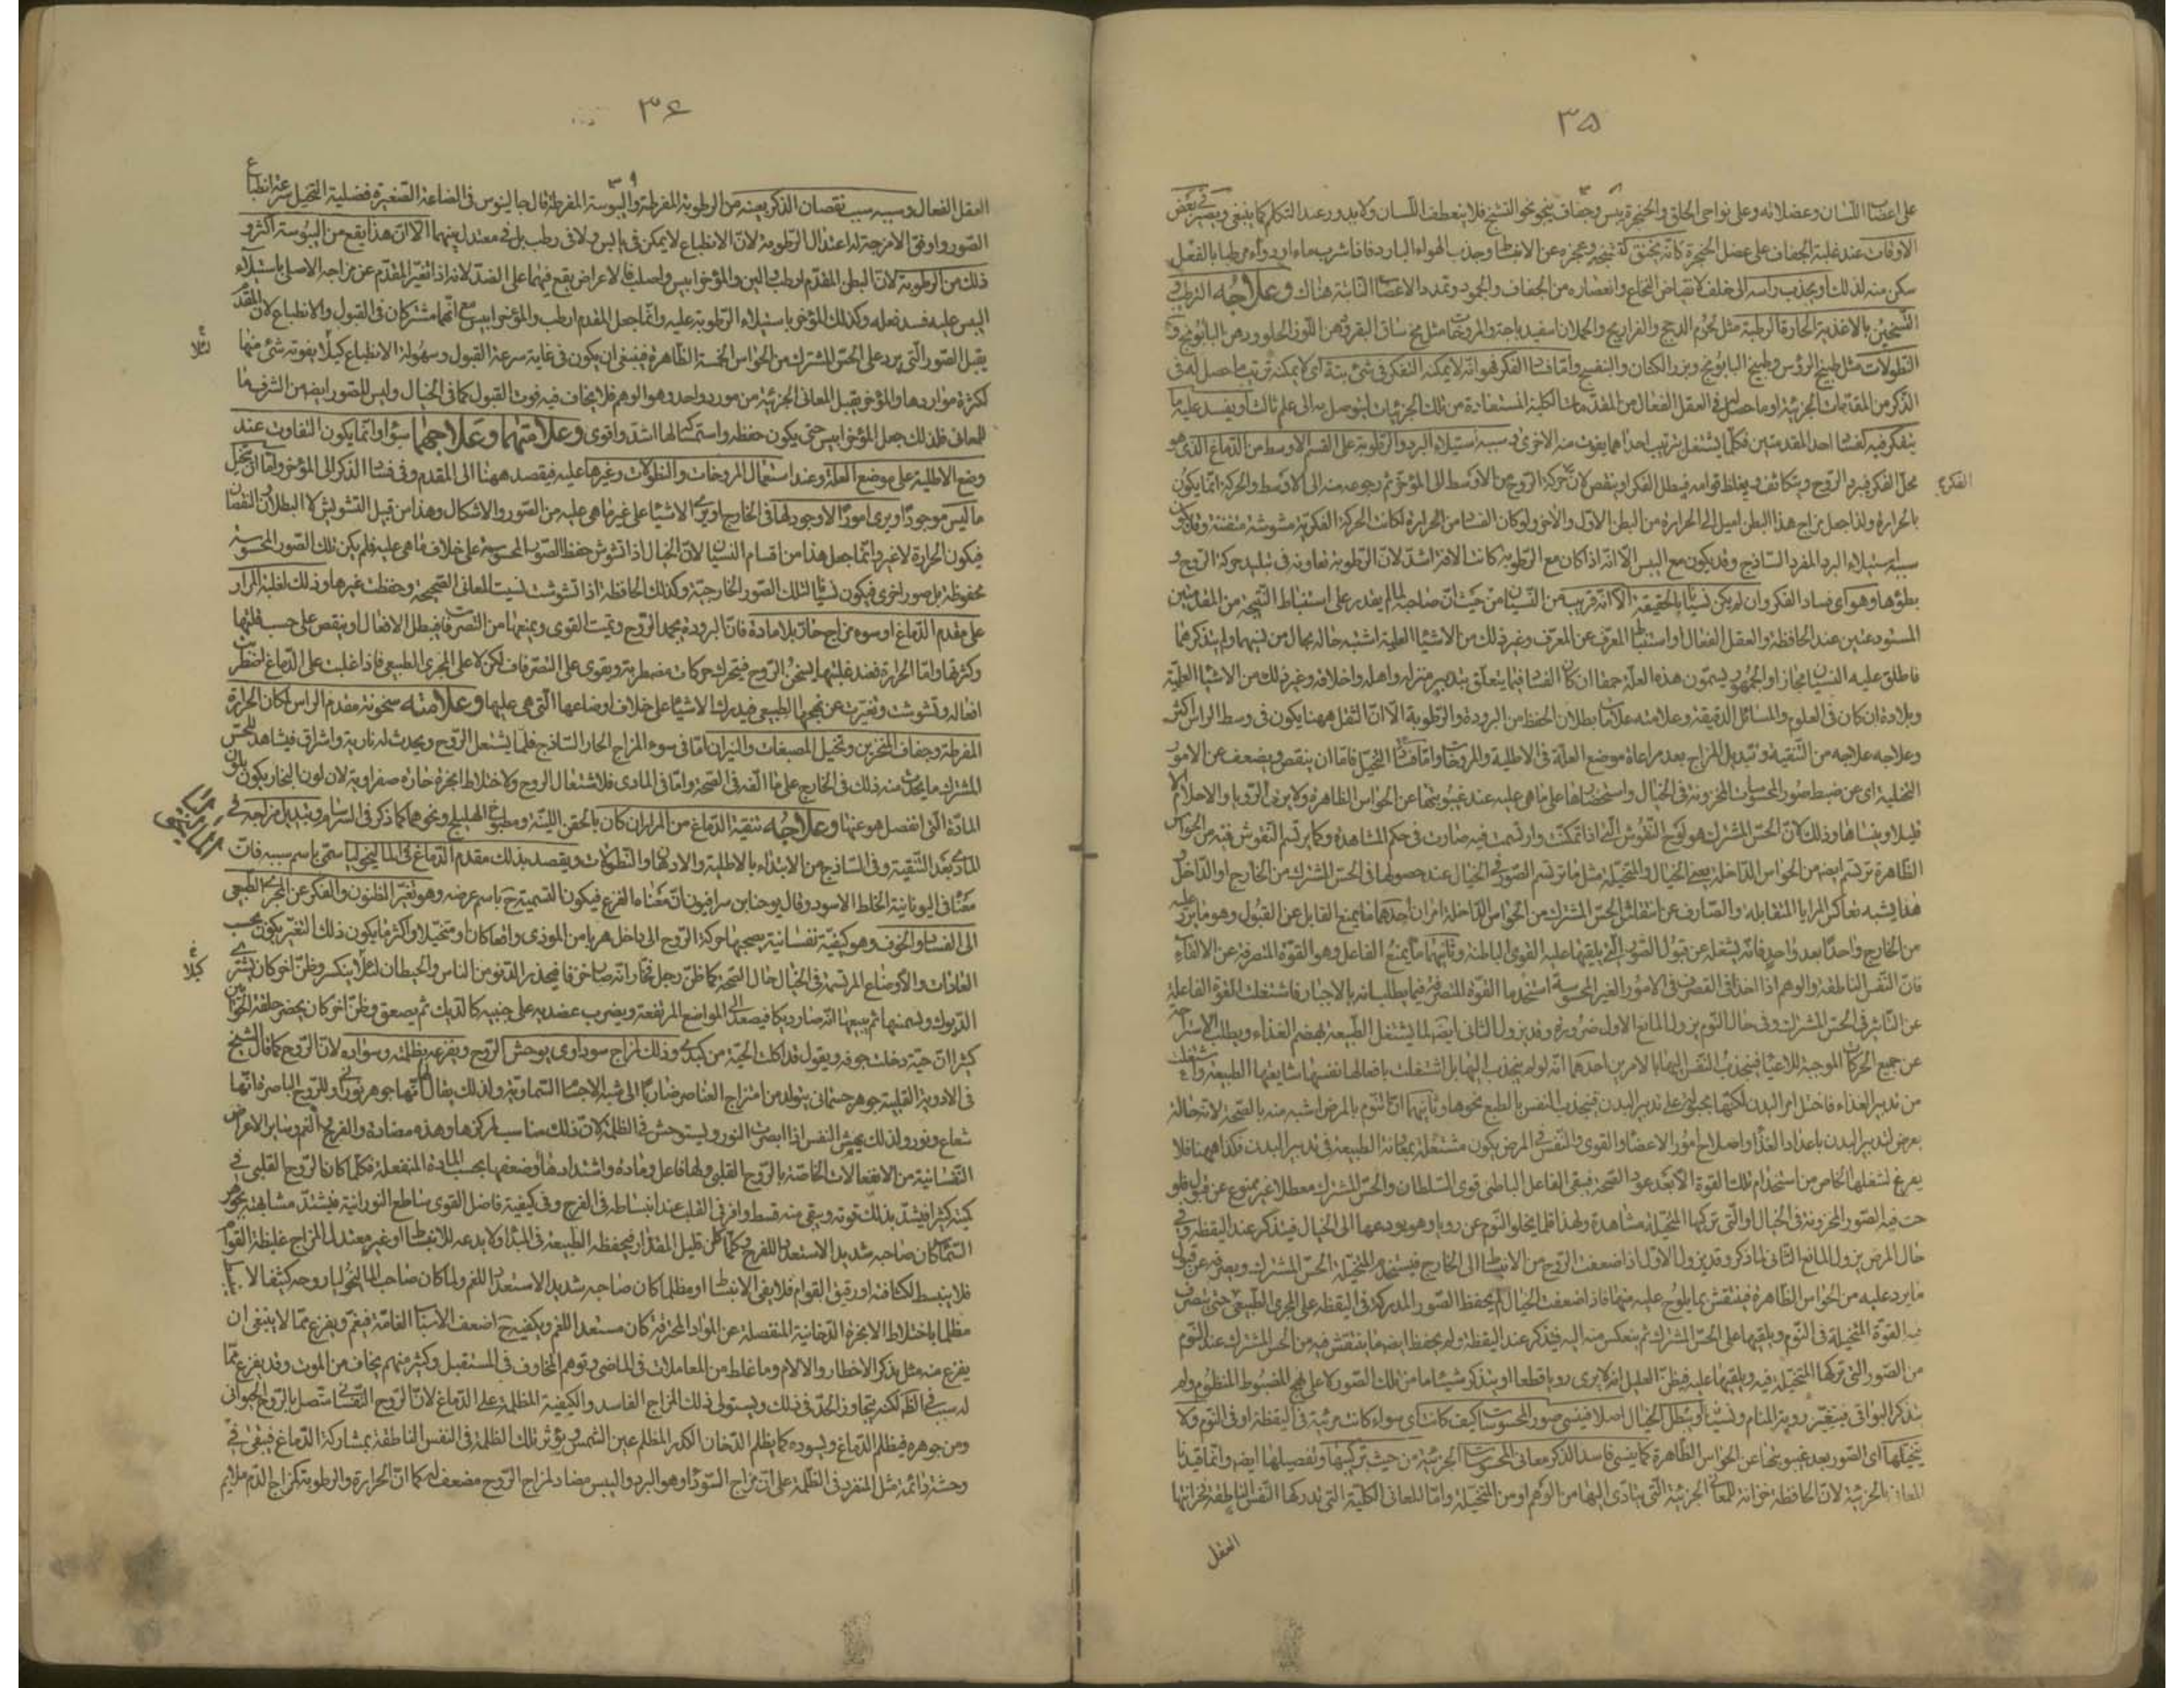 ٣٥
على اعضاب اللسان وعضلاته وعلى نواحى الحلق والحنجرة يبس وجفاف ينحو نحو التشنج فلا ينعطف اللسان ولا يدور عند التكلم كما ينبغى ويصير فى بعض
الاوقات عند غلبة الجفاف على عضل الحنجرة كانه يختنق وعجزه عن الانبساط وجذب الهواء البارد فاذا شرب ماء او دواء مرطبا بالفعل
سكن منه لذلك او يجذب راسه الى خلف لانقباض النخاع وانعصاره من الجفاف والجمود وتمدد الاعصاب النابتة هناك وعلاجه الترطيب و
التسخين بالاغذية الحارة الرطبة مثل لحوم الدجج والفراريج والحملان اسفيدباجة والمروخات مثل مخ ساق البقر ودهن اللوز الحلو ودهن البابونج و
النطولات مثل طبيخ الرؤس وطبيخ البابونج وبزر الكتان والبنفسج واما فساد الفكر فهو انه لا يمكنه التفكر فى شئ بتة اى لا يمكنه ترتيب ما حصل له فى
الذكر من المقدمات الجزئية او ما حصل له فى العقل الفعال من المقدمات الكلية المستفادة من تلك الجزئيات ليتوصل به الى علم ثالث او يفسد عليه ما
يتفكر فيه لفساد احد المقدمتين فكلما يشتغل بترتيب احداهما يفوت منه الاخرى وسببه استيلاء البرد والرطوبة على القسم الاوسط من الدماغ الذى هو
محل الفكر فيبرد الروح ويتكاثف ويغلظ قوامه فيبطل الفكر او ينقص لان حركة الروح من الاوسط الى المؤخر ثم رجوعه منه الى الاوسط والحركة انما يكون
الفكرع
بالحرارة ولذا جعل مزاج هذا البطن اميل الى الحرارة من البطن الاول والاخر ولو كان الفساد من الحرارة لكانت الحركة الفكرية مشوشة متفننة وقد يكون
سببه استيلاء البرد المفرد الساذج وقد يكون مع اليبس الا انه اذا كان مع الرطوبة كانت الافة اشد لان الرطوبة تعاونه فى تبليد حركة الروح و
بطؤها وهو اى فساد الفكر وان لم يكن نسيانا بالحقيقة الا انه قريب من النسيان من حيث ان صاحبه لما لم يقدر على استنباط النتيجة من المقدمتين
المستودعتين عند الحافظة والعقل الفعال او استنباط المعرف عن المعرف وغير ذلك من الاشياء العلمية اشبه حاله بحال من نسيهما ولم يتذكرهما
فاطلق عليه النسيان مجازا والجمهور يسمون هذه العلة حمقا ان كان الفساد فيما يتعلق بتدبير منزله واهله واخلاقه وغير ذلك من الاشياء العلمية
وبلادة ان كان فى العلوم والمسائل الدقيقة وعلامته علامات بطلان الحفظ من البرودة والرطوبة الا ان الثقل ههنا يكون فى وسط الراس اكثر
وعلاجه علاجه من التنقية وتبديل المزاج بعد مراعاة موضع العلة فى الاطلية والمروخات واما فساد التخيل فاما ان ينقص ويضعف عن الامور
التخيلية اى عن ضبط صور المحسوسات المخزونة فى الخيال واستحضارها على ما هى عليه عند غيبوبتها عن الحواس الظاهرة ولا يرى الرويا والاحلام الا
قليلا وينساها وذلك لان الحس المشترك هو لوح النقوش التى اذا تمكنت وارتسمت فيه صارت فى حكم المشاهدة وكما يرتسم النقوش فيه من الحواس
الظاهرة ترتسم ايضا من الحواس الداخلة يعنى الخيال والمتخيلة مثل ما ترتسم الصور فى الخيال عند حصولها فى الحس المشترك من الخارج او الداخل
هذا يشبه تعاكس المرايا المتقابلة والصارف عن انتقاش الحس المشترك من الحواس الداخلة امران احدهما ما يمنع القابل عن القبول وهو ما يرد عليه
من الخارج واحدا بعد واحد فانه يشغله عن قبول الصور التى يلقيها عليه القوى الباطنة وثانيهما ما يمنع الفاعل وهو القوة المتصرفة عن الالقاء
فان النفس الناطقة والوهم اذا اخذا فى التصرف فى الامور الغير المحسوسة استخدما القوة المتصرفة فيما يطلبانه بالاجبار فاشتغلت القوة الفاعلة
عن التاثير فى الحس المشترك وفى حال النوم يزول المانع الاول ضرورة وقد يزول الثانى ايضا لما يشتغل الطبيعة بهضم الغذاء ويطلب الاستراحة
عن جميع الحركات الموجبة للاعياء فينجذب النفس اليها بالامرين احدهما انه لو لم ينجذب اليها بل اشتغلت بافعالها نفسها شايعتها الطبيعة واشتغلت
من تدبير الغذاء فاختل امر البدن لكنها مجبولة على تدبير البدن فينجذب النفس بالطبع نحوها وثانيهما ان النوم بالمرض اشبه منه بالصحة لانه حالة
يعرض لتدبير البدن باعداد الغذاء واصلاح امور الاعضاء والقوى والنفس فى المرض يكون مشتغلة بمعاونة الطبيعة فى تدبير البدن فكذا ههنا فلا
يفرغ لشغلها الخاص من استخدام تلك القوة الا بعد عود الصحة فيبقى الفاعل الباطنى قوى السلطان والحس المشترك معطلا غير ممنوع عن قبول
فيه الصور المخزونة فى الخيال او التى تركبها المتخيلة مشاهدة ولهذا قلما يخلو النوم عن رويا وهو يودعها الى الخيال فيتذكر عند اليقظة وفى
حال المرض يزول المانع الثانى لما ذكر وقد يزول الاول اذا ضعفت الروح من الانبساط الى الخارج فيستخدم المتخيلة الحس المشترك ويصرفه عن قبول
ما يرد عليه من الحواس الظاهرة فينتقش بما يلوح عليه منها فاذا ضعفت الخيال لم يحفظ الصور المدركة فى اليقظة على المجرى الطبيعى حتى يتصرف
القوة المتخيلة فى النوم ويلقيها على الحس المشترك ثم ينعكس منه اليه فيتذكر عند اليقظة ولم يحفظ ايضا ما ينتقش فيه من الحس المشترك عند النوم
من الصور التى تركبها المتخيلة فيه ويلقيها عليه فيظن العليل انه لا يرى رويا قطعا او يتذكر شيئا ما من تلك الصور لا على نهج المضبوط المنظوم ولم
يتذكر البواقى فيتغير روية المنام ونسيانا او يبطل الخيال اصلا فينسى صور المحسوسات كيف كانت اى سواء كانت مرئية فى اليقظة او فى النوم ولا
يتخيلها اى الصور بعد غيبوبتها عن الحواس الظاهرة كما ينسى فاسد الذكر معانى المحسوسات الجزئية من حيث تركيبها وتفصيلها ايضا وانما قيدنا
المعانى بالجزئية لان الحافظة خزانة للمعانى الجزئية التى يتادى اليها من الوهم او من المتخيلة واما المعانى الكلية التى تدركها النفس الناطقة فخزانتها
العقل
٣٦
العقل الفعال وسببه سبب نقصان الذكر بعينه من الرطوبة المفرطة واليبوسة المفرطة قال جالينوس فى الصناعة الصغيرة فضيلة التخيل سرعة انطباع
الصور واوفق الامزجة له اعتدال الرطوبة لان الانطباع لا يمكن فى يابس ولا فى رطب بل فى معتدل بينهما الا ان هذا يقع من اليبوسة اكثر و
ذلك من الرطوبة لان البطن المقدم ارطب والين والمؤخر ايبس واصلب فالاعراض يقع فيهما على الضد لانه اذا تغير المقدم عن مزاجه الاصلى باستيلاء
اليبس عليه فسد فعله وكذلك المؤخر باستيلاء الرطوبة عليه وانما جعل المقدم ارطب والمؤخر ايبس مع انهما مشتركان فى القبول والانطباع لان المقدم
يقبل الصور التى يرد على الحس المشترك من الحواس الخمسة الظاهرة فينبغى ان يكون فى غاية سرعة القبول وسهولة الانطباع كيلا يفوته شئ منها
لئلا
لكثرة مواردها والمؤخر يقبل المعانى الجزئية من مورد واحد وهو الوهم فلا يخاف فيه فوت القبول كما فى الخيال وليس للصور ايضا من الشرف ما
للمعانى فلذلك جعل المؤخر ايبس حتى يكون حفظه واستمساكه لها اشد واقوى وعلامتهما وعلاجهما سواء وانما يكون التفاوت عند
وضع الاطلية على موضع العلة وعند استعمال المروخات والنطولات وغيرها عليه فيقصد ههنا الى المقدم وفى فساد الذكر الى المؤخر واما ان يتخيل
ما ليس موجودا ويرى امورا لا وجود لها فى الخارج او يرى الاشياء على غير ما هى عليه من الصور والاشكال وهذا من قبيل التشويش لا البطلان والنقصان
فيكون الحرارة لا غير وانما جعل هذا من اقسام النسيان لان الخيال اذا تشوش حفظ الصور المحسوسة على خلاف ما هى عليه فلم يكن تلك الصور المحسوسة
محفوظة بل صور اخرى فيكون نسيانا لتلك الصور الخارجية وكذلك الحافظة اذا تشوشت نسيت المعانى الصحيحة وحفظت غيرها وذلك لغلبة المرار
على مقدم الدماغ او سوء مزاج حار بلا مادة فان البرودة يجمد الروح ويميت القوى ويمنعها من التصرف فيبطل الافعال او ينقص على حسب قلتها
وكثرتها واما الحرارة فعند غلبتها يسخن الروح فيتحرك حركات مضطربة ويقوى على التصرف لكن لا على المجرى الطبيعى فاذا غلبت على الدماغ اضطربت
افعاله وتشوشت وتغيرت عن نهجها الطبيعى فيدرك الاشياء على خلاف اوضاعها التى هى عليها وعلامته سخونة مقدم الراس لمكان الحرارة
المفرطة وجفاف المنخرين وتخيل المصبغات والنيران اما فى سوء المزاج الحار الساذج فلما يشتعل الروح ويحدث له نارية واشراق فيشاهد الحس
المشترك ما يحدث منه ذلك فى الخارج على ما الفه فى الصحة واما فى المادى فلاشتعال الروح ولاختلاط ابخرة حارة صفراوية لان لون البخار يكون بلون
المادة التى انفصل هو عنها وعلاجه تنقية الدماغ من المرار ان كان بالحقن اللينة ومطبوخ الهليلج ونحوهما كما ذكر فى السرسام وتبديل مزاجه فى
المادى بعد التنقية وفى الساذج من الابتداء بالاطلية والادهان والنطولات ويقصد بذلك مقدم الدماغ فى المالنخوليا سمى باسم سببه فان
معناه فى اليونانية الخلط الاسود وقال يوحنا بن سرافيون ان معناه الفزع فيكون التسمية ح باسم عرضه وهو تغير الظنون والفكر عن المجرى الطبيعى
الى الفساد والخوف وهو كيفية نفسانية يصحبها حركة الروح الى داخل هربا من الموذى واقعا كان او متخيلا واكثر ما يكون ذلك التغير يكون بحسب
العادات والاوضاع المرتسمة فى الخيال حال الصحة كما ظن رجل فخار انه صار خزفا فيحذر الدنو من الناس والحيطان لئلا ينكسر وظن اخر كان يشترى
كيلا
الديوك ويسمنها ثم يبيعها انه صار ديكا فيصعد الى المواضع المرتفعة ويضرب عضديه على جنبيه كالديك ثم يصعق وظن اخر كان يحضر حلقة الحوائين
كثيرا ان حية دخلت جوفه ويقول قد اكلت الحية من كبدى وذلك لمزاج سوداوى يوحش الروح ويفزعه بظلمته وسواده لان الروح كما قال الشيخ
فى الادوية القلبية جوهر جسمانى يتولد من امتزاج العناصر ضاربا الى شبه الاجسام السماوية ولذلك يقال لها انها جوهر نورانى وللروح الباصرة انها
شعاع ونور ولذلك يهش النفس اذا ابصرت النور ويستوحش فى الظلمة لان ذلك مناسب لمركبها وهذه مضادة والفرح والغم وسائر الاعراض
النفسانية من الانفعالات الخاصة بالروح القلبى ولها فاعل ومادة واشتدادها وضعفها بحسب المادة المنفعلة فكلما كان الروح القلبى فى
كميته كثيرا فيشتد بذلك قوته ويبقى منه قسط وافر فى القلب عند انبساطه فى الفرح وفى كيفية فاضل القوى ساطع النورانية فيشتد مشابهته بجوهر
السماء كان صاحبه شديد الاستعداد للفرح وكلما كان قليل المقدار فيحفظه الطبيعة فى المبدا ولا يدعه للانبساط او غير معتدل المزاج غليظة القوام
فلا ينبسط لكثافته او رقيق القوام فلا يفى الانبساط او مظلما كان صاحبه شديد الاستعداد للغم ولما كان صاحب المالنخوليا روحه كثيفا لا
مظلما باختلاط الابخرة الدخانية المنفصلة عن المواد المحترقة كان مستعدا للغم ويكفيه ح اضعف الاسباب الغامة فيغم ويفزع مما لا ينبغى ان
يفزع منه مثل ذكر الاخطار والالام وما غلط من المعاملات فى الماضى وتوهم المخاوف فى المستقبل وكثير منهم يخاف من الموت وقد يفزع مما
له سبب فى الظاهر لكنه يتجاوز الحد فى ذلك ويستولى ذلك المزاج الفاسد والكيفية المظلمة على الدماغ لان الروح النفسانى متصل بالروح الحيوانى
ومن جوهره فيظلم الدماغ ويسوده كما يظلم الدخان الكدر المظلم عين الشمس ويؤثر تلك الظلمة فى النفس الناطقة بمشاركة الدماغ فيبقى فى
وحشة دائمة مثل المنفرد فى الظلمة على ان مزاج السوداء وهو البرد واليبس مضاد لمزاج الروح مضعف له كما ان الحرارة والرطوبة كمزاج الدم ملايم